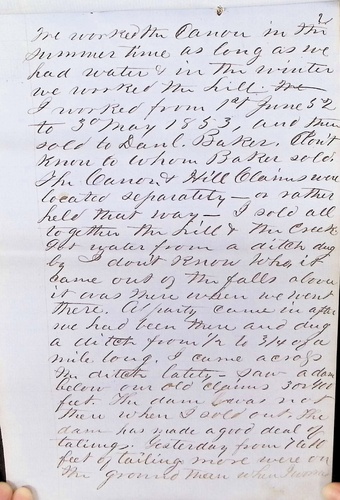 2
We worked the Canon in the
summer time as long as we
had water & in the winter
we worked the hill. We
I worked from 1st June 52
to 3d May 1853, and then
sold to Danl. Baker. Don't
know to whom Baker sold.
The Canon & Hill Claims were
located separately — or rather
held that way — I sold all
together the hill & the Creek
Got water from a ditch dug
by I don't know who, it
came out of the falls above
it was there when we went
there. A party came in after
we had been there and dug
a ditch from 1/2 to 3/4 of a
mile long. I came across
the ditch lately — saw a dam
below our old claims 30 or 40
feet. The dam was not
there when I sold out. The
dam has made a good deal of
tailings. Yesterday from 7 to 10
feet of tailing more were on
the ground than when I